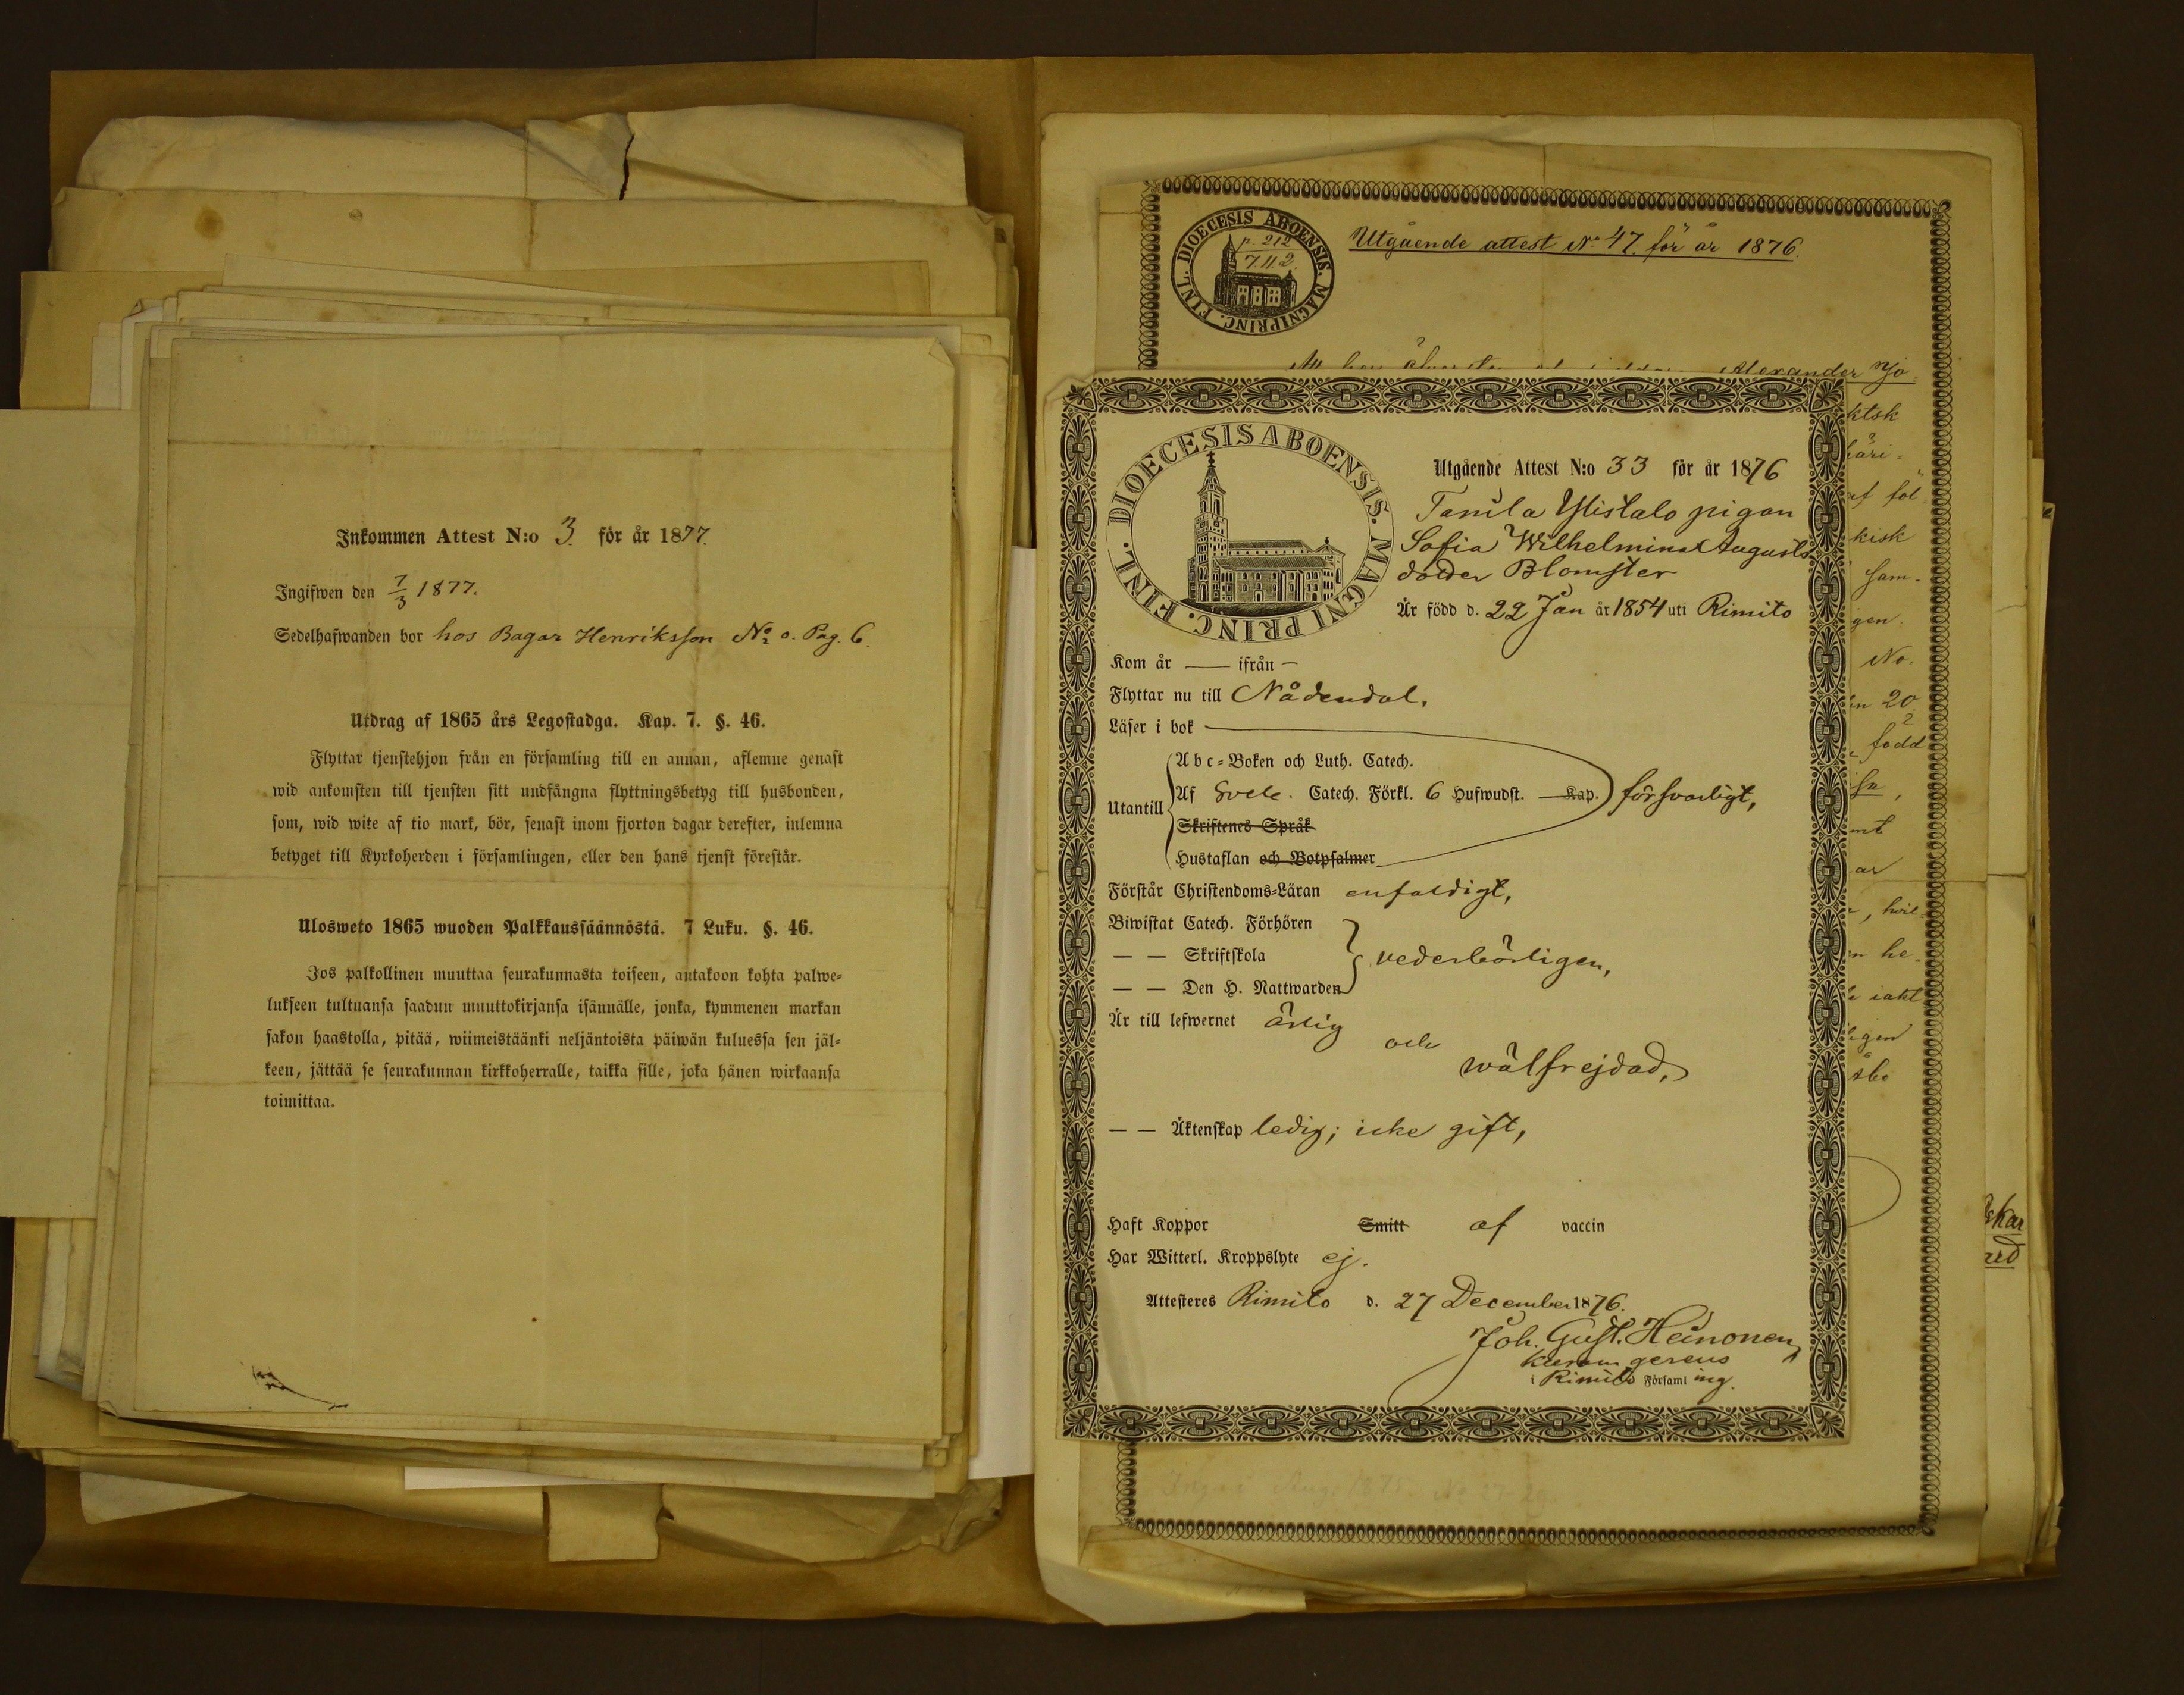 Inkommen Attest N:o 3. för år 1877.
Ingifwen den 7/3 1877.
Sedelhafwanden bor hos Bagar Henriksson No 0. Pag. 6.
Utdrag af 1865 års Legostadga. Kap. 7. §. 46.
Flyttar tjenstehjon från en församling till en annan, aflemne genast
wid ankomsten till tjensten sitt undfångna flyttningsbetyg till husbonden,
som, wid wite af tio mark, bör, senast inom fjorton dagar derefter, inlemna
betyget till Kyrkoherden i församlingen, eller den hans tjenst förestår.
Ulosweto 1865 wuoden Palkkaussäännöstä. 7 Luku. §. 46.
Jos palkollinen muuttaa seurakunnasta toiseen, antakoon kohta palwe-
lukseen tultuansa saadun muuttokirjansa isännälle, jonka, kymmenen markan
sakon haastolla, pitää, wiimeistäänki neljäntoista päiwän kuluessa sen jäl-
keen, jättää se seurakunnan kirkkoherralle, taikka sille, joka hänen wirkaansa
toimittaa.
DIOECESIS ABOENSIS. MAGNI PRINC. FINL.
p. 212
Utgående attest No 47. för år 1876.
Alexander
ktsk
af föl
kisk
sam-
gen
No.
20
född
ar
, hvil-
he-
gen
DIOECESIS ABOENSIS. MAGNI PRINC. FINL.
Utgående Attest N:o 33 för år 1876
Tanila Ylistalo pigan
Sofia Wilhelmina Augusts
dotter Blomster
Är född d. 22 Jan år 1854 uti Rimito
Kom år — ifrån —
Flyttar nu till Nådendal.
Läser i bok
Abc-Boken och Luth. Catech.
Utantill Af Sveb. Catech. Förkl. 6 Hufwudst. Kap. försvarligt,
Skriftenes Språk
Hustaflan och Botpsalmer
Förstår Christendoms-Läran enfaldigt,
Biwistat Catech. Förhören
— — Skriftskola vederbörligen,
— — Den H. Nattwarden
Är till lefwernet ärlig
och
wälfrejdad,
— — Äktenskap ledig; icke gift,
Haft Koppor Smitt af vaccin
Har Witterl. Kroppslyte ej.
Attesteres Rimito d. 27 December 1876.
Joh. Gust. Heinonen
kuram gerens
i Rimito Församling.